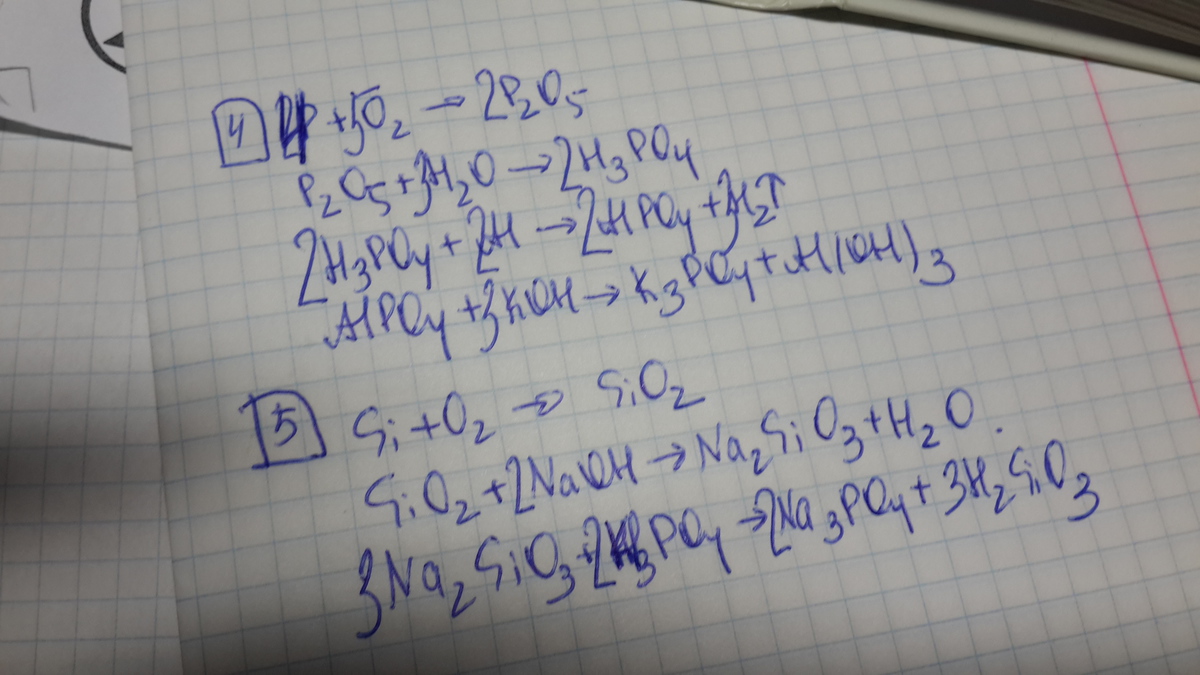 4 4P + 5O₂ → 2P₂O₅
P₂O₅ + 3H₂O → 2H₃PO₄
2H₃PO₄ + 2Al → 2AlPO₄ + 3H₂↑
AlPO₄ + 3KOH → K₃PO₄ + Al(OH)₃
5 Si + O₂ → SiO₂
SiO₂ + 2NaOH → Na₂SiO₃ + H₂O.
3Na₂SiO₃ + 2H₃PO₄ → 2Na₃PO₄ + 3H₂SiO₃